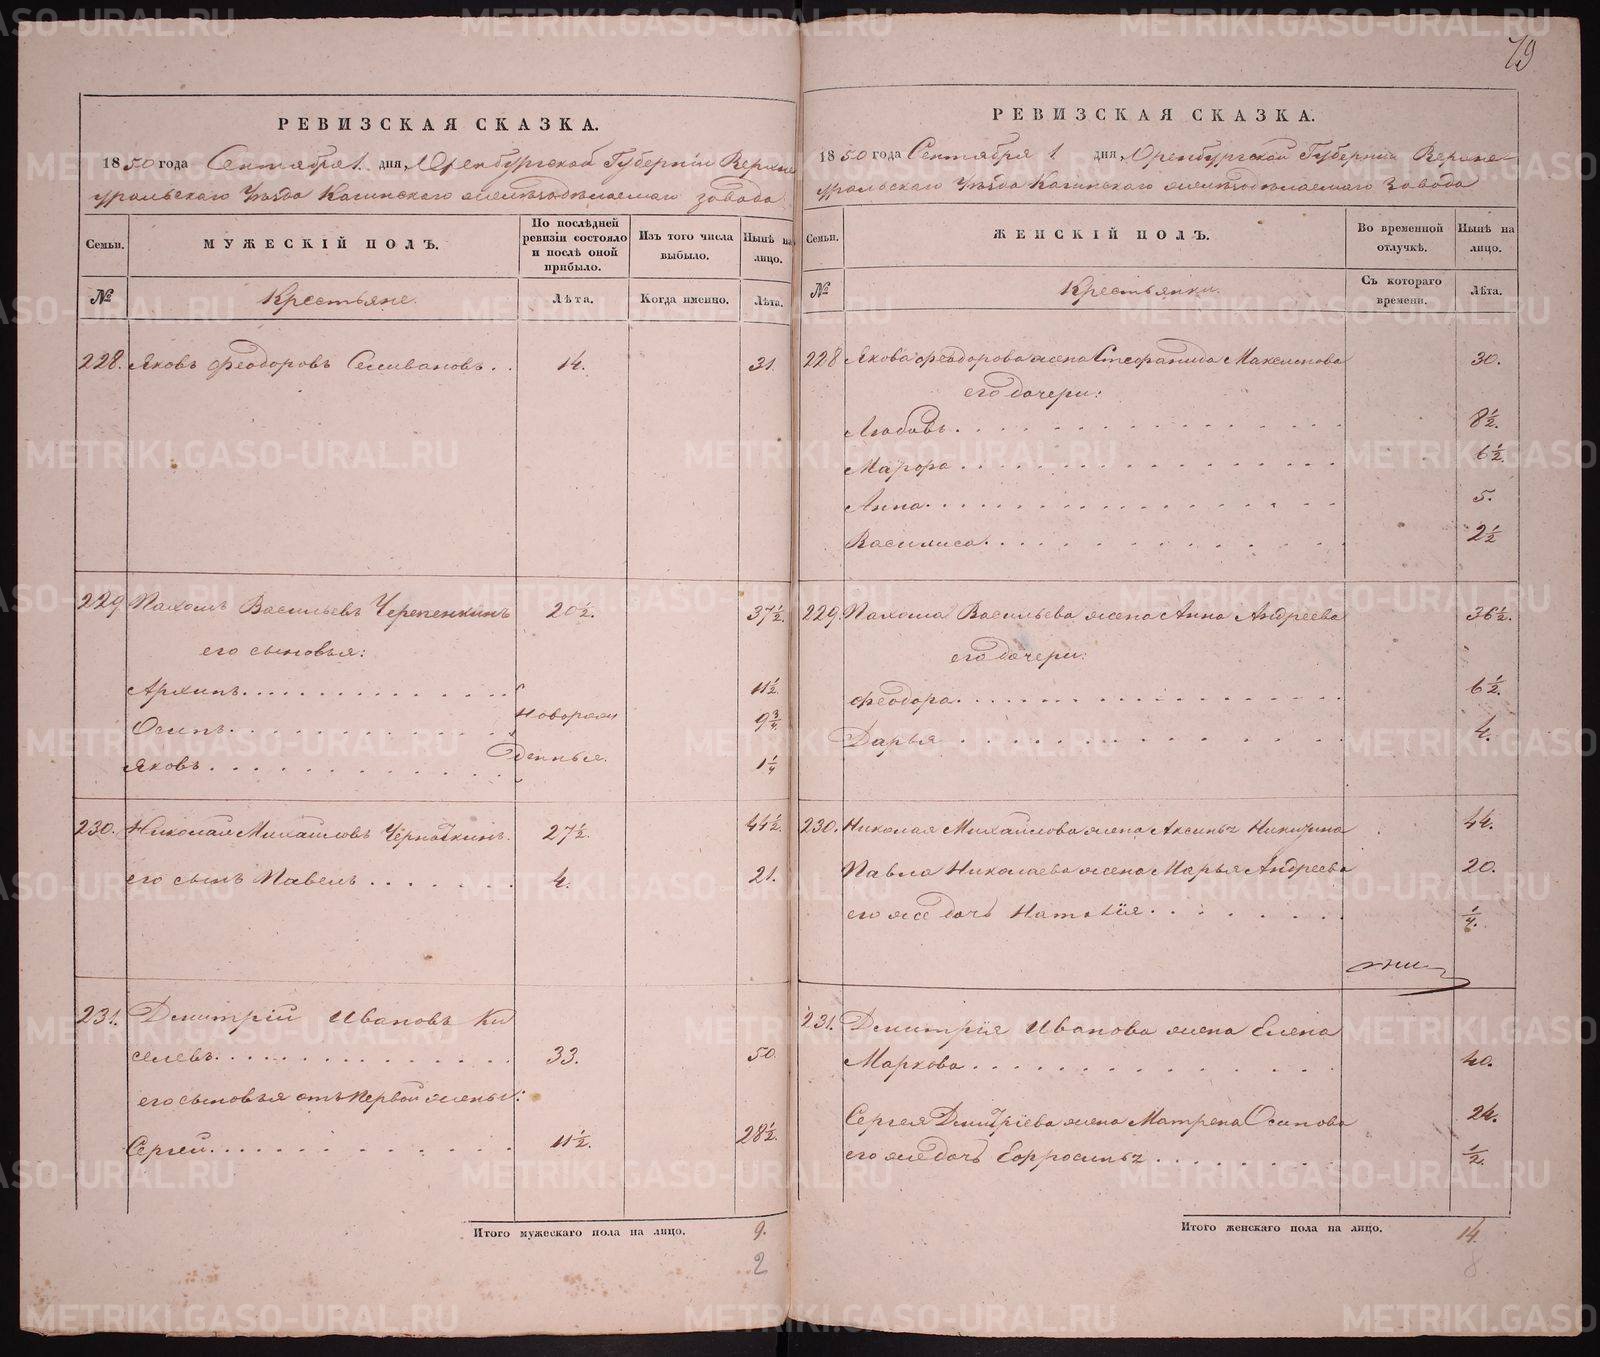 79
РЕВИЗСКАЯ СКАЗКА.
1850 года Сентября 1 дня, Оренбургской Губернiи Верхне
уральскаго Уѣзда Кагинскаго железодѣлаемаго завода
Семьи.
МУЖЕСКIЙ ПОЛЪ.
По послѣдней ревизiи состояло и послѣ оной прибыло.
Изъ того числа выбыло.
Нынѣ на лицо.
№
Крестьяне.
Лѣта.
Когда именно.
Лѣта.
228. Яковъ Феодоровъ Селивановъ . . 14. 31.
229. Пахомъ Васильевъ Черепенкинъ 20½. 37½.
его сыновья:
Архипъ. 11½.
Осипъ. новорож 9¾
Яковъ. денные. 1¼
230. Николай Михайловъ 27½. 44½.
его сынъ Павелъ. 4. 21.
231. Дмитрiй Ивановъ Ки
селевъ. 33. 50.
его сыновья отъ первой жены:
Сергей. 11½. 28½.
Итого мужескаго пола на лицо. 9.
2
РЕВИЗСКАЯ СКАЗКА.
1850 года Сентября 1 дня, Оренбургской Губернiи Верхне
уральскаго Уѣзда Кагинскаго железодѣлаемаго завода
Семьи.
ЖЕНСКIЙ ПОЛЪ.
Во временной отлучкѣ.
Нынѣ на лицо.
№
Крестьянки.
Съ котораго времени.
Лѣта.
228 Якова Феодорова жена Стефанида Максимова 30.
его дочери:
Любовь. 8½.
Марфа 6½.
Анна. 5.
Василиса. 2½
229. Пахома Васильева жена Анна Андреева 36½.
его дочери:
Феодора. 6½.
Дарья 4.
230. Николая Михайлова жена Аксинья 44.
Павла Николаева жена Марья Андреева 20.
его же дочь Наталiя. ¼.
231. Дмитрiя Иванова жена Елена
Маркова 40.
Сергея Дмитрiева жена Матрена Осипова 24.
его же дочь Ефросинья ½.
Итого женскаго пола на лицо. 14.
8
METRIKI.GASO-URAL.RU